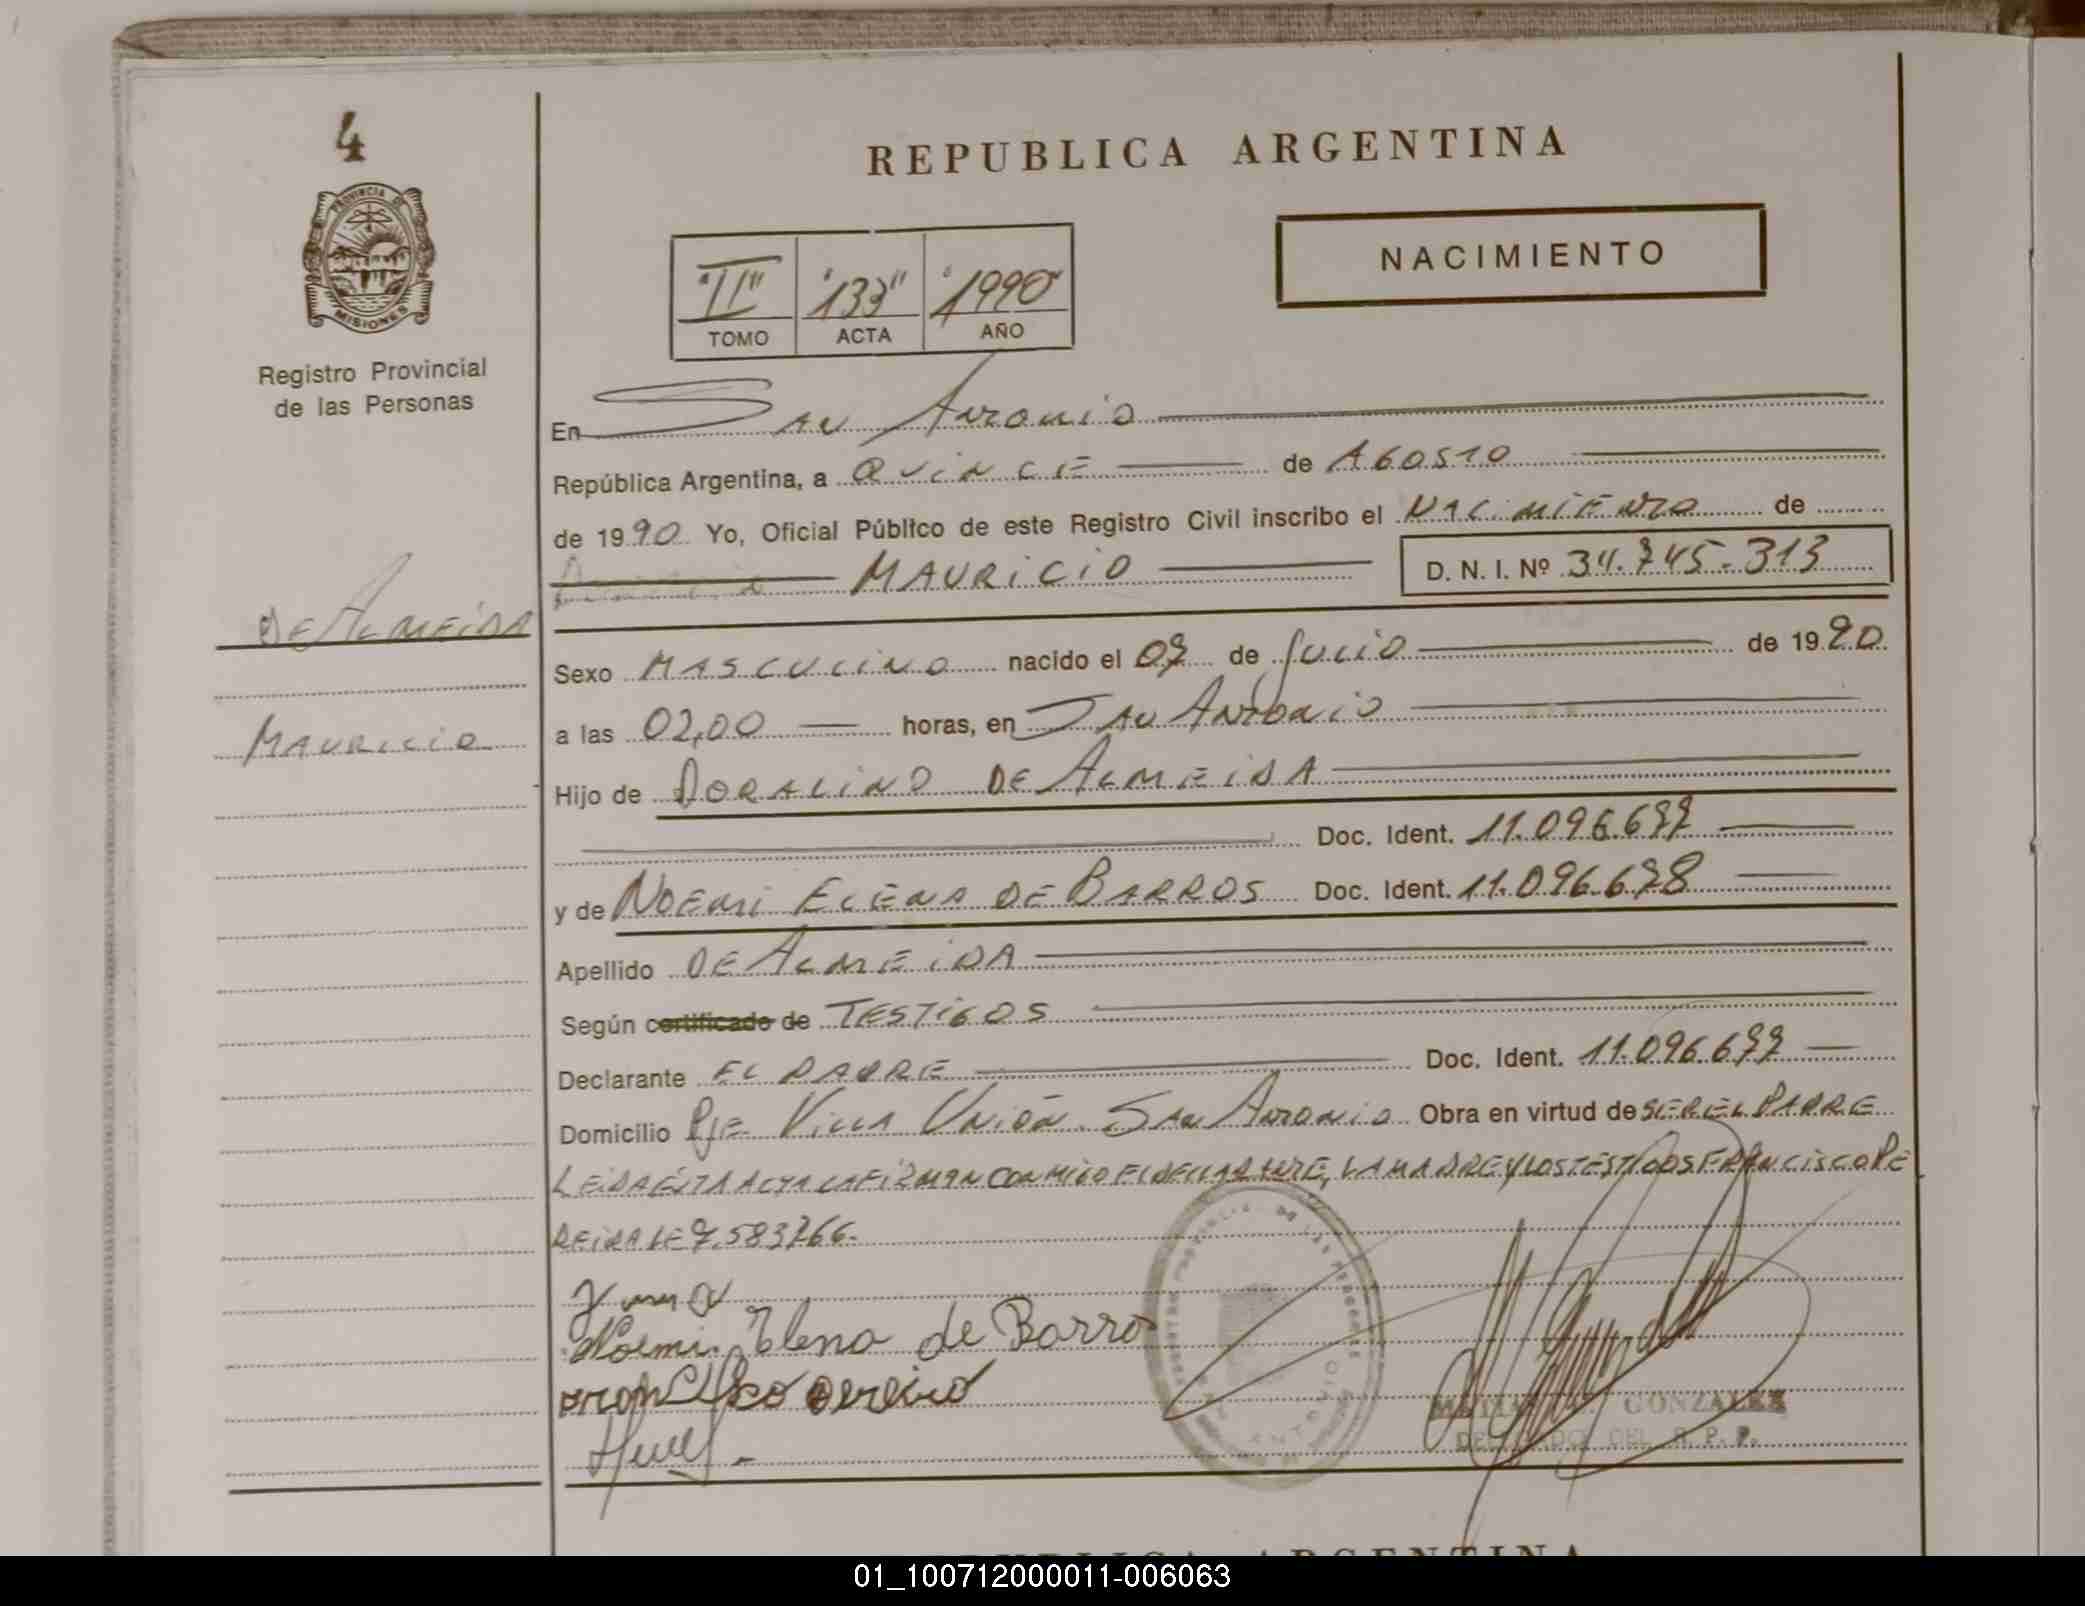 4
PROVINCIA DE
MISIONES
Registro Provincial
de las Personas
DE ALMEIDA
MAURICIO
REPUBLICA ARGENTINA
NACIMIENTO
"II" "133" "1990"
TOMO ACTA AÑO
En SAN ANTONIO
República Argentina, a QUINCE de AGOSTO
de 1990 Yo, Oficial Público de este Registro Civil inscribo el NACIMIENTO de
MAURICIO D. N. I. Nº 34.745.313
Sexo MASCULINO nacido el 07 de JULIO de 1990
a las 02,00 horas, en SAN ANTONIO
Hijo de DORALINO DE ALMEIDA
Doc. Ident. 11.096.677
y de NOEMI ELENA DE BARROS Doc. Ident. 11.096.678
Apellido DE ALMEIDA
Según certificado de TESTIGOS
Declarante EL PADRE Doc. Ident. 11.096.677
Domicilio Pje VILLA UNIÓN SAN ANTONIO Obra en virtud de SER EL PADRE
LEIDA ESTA ACTA LA FIRMAN CONMIGO EL DECLARANTE, LA MADRE Y LOS TESTIGOS FRANCISCO PE
REIRA LE 7.583.266.
Noemi Elena de Barro
GONZALEZ
DELEGADO DEL R. P. P.
REPUBLICA ARGENTINA
01_100712000011-006063